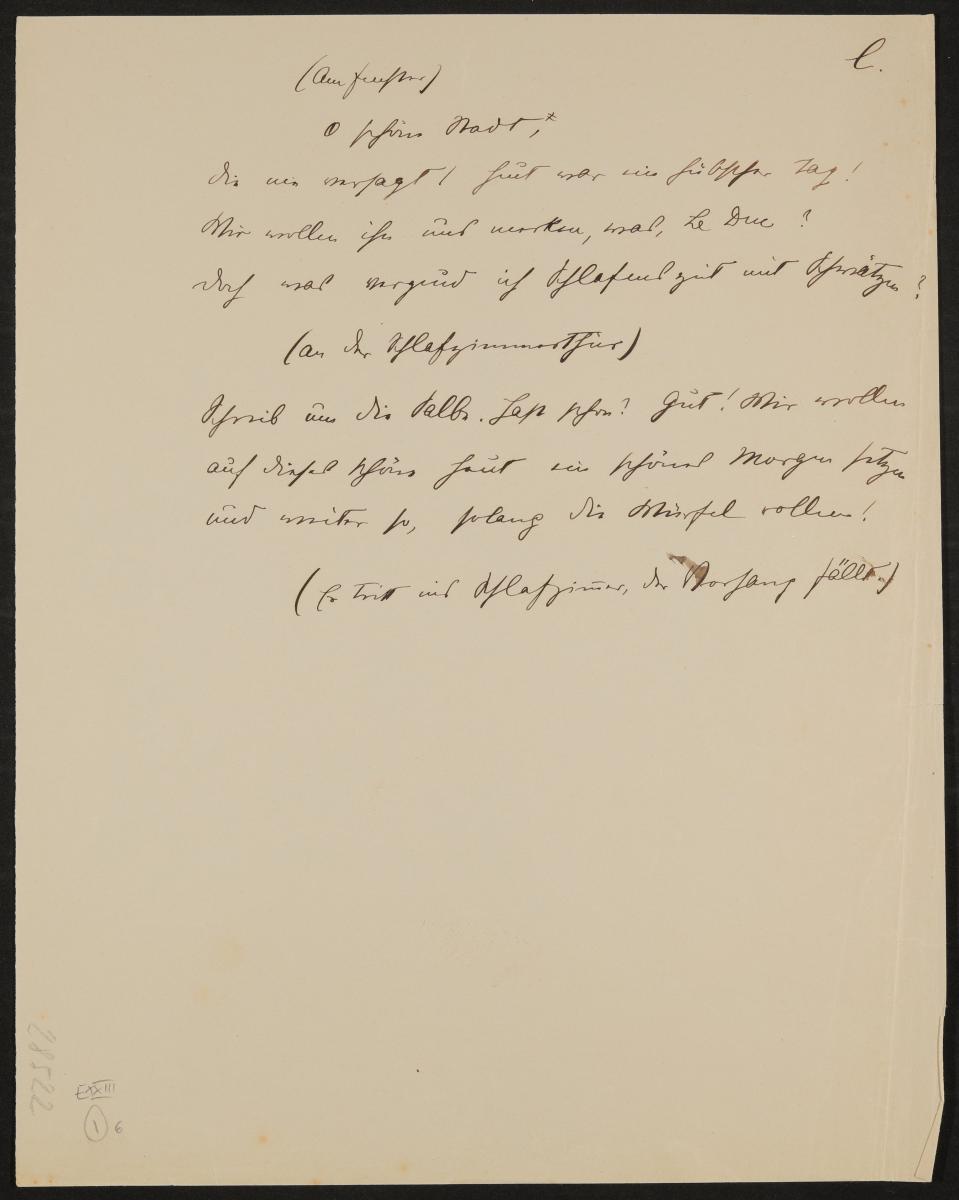 l.
(Am Fenster)
O schöne Stadt,
die nie versagt! Heut war ein hübscher Tag!
Wir wollen ihn uns merken, was, Le Duc?
Doch was vergeud ich Schlafenszeit mit Schwätzen?
(an der Schlafzimmerthür)
Schreib um die Salbe. Hast schon? Gut! Wir wollen
auf dieses schöne Heut ein schönes Morgen setzen
und weiter so, solang die Würfel rollen!
(Er tritt ins Schlafzimmer, der Vorhang fällt.)
28522
EXXIII
1 6